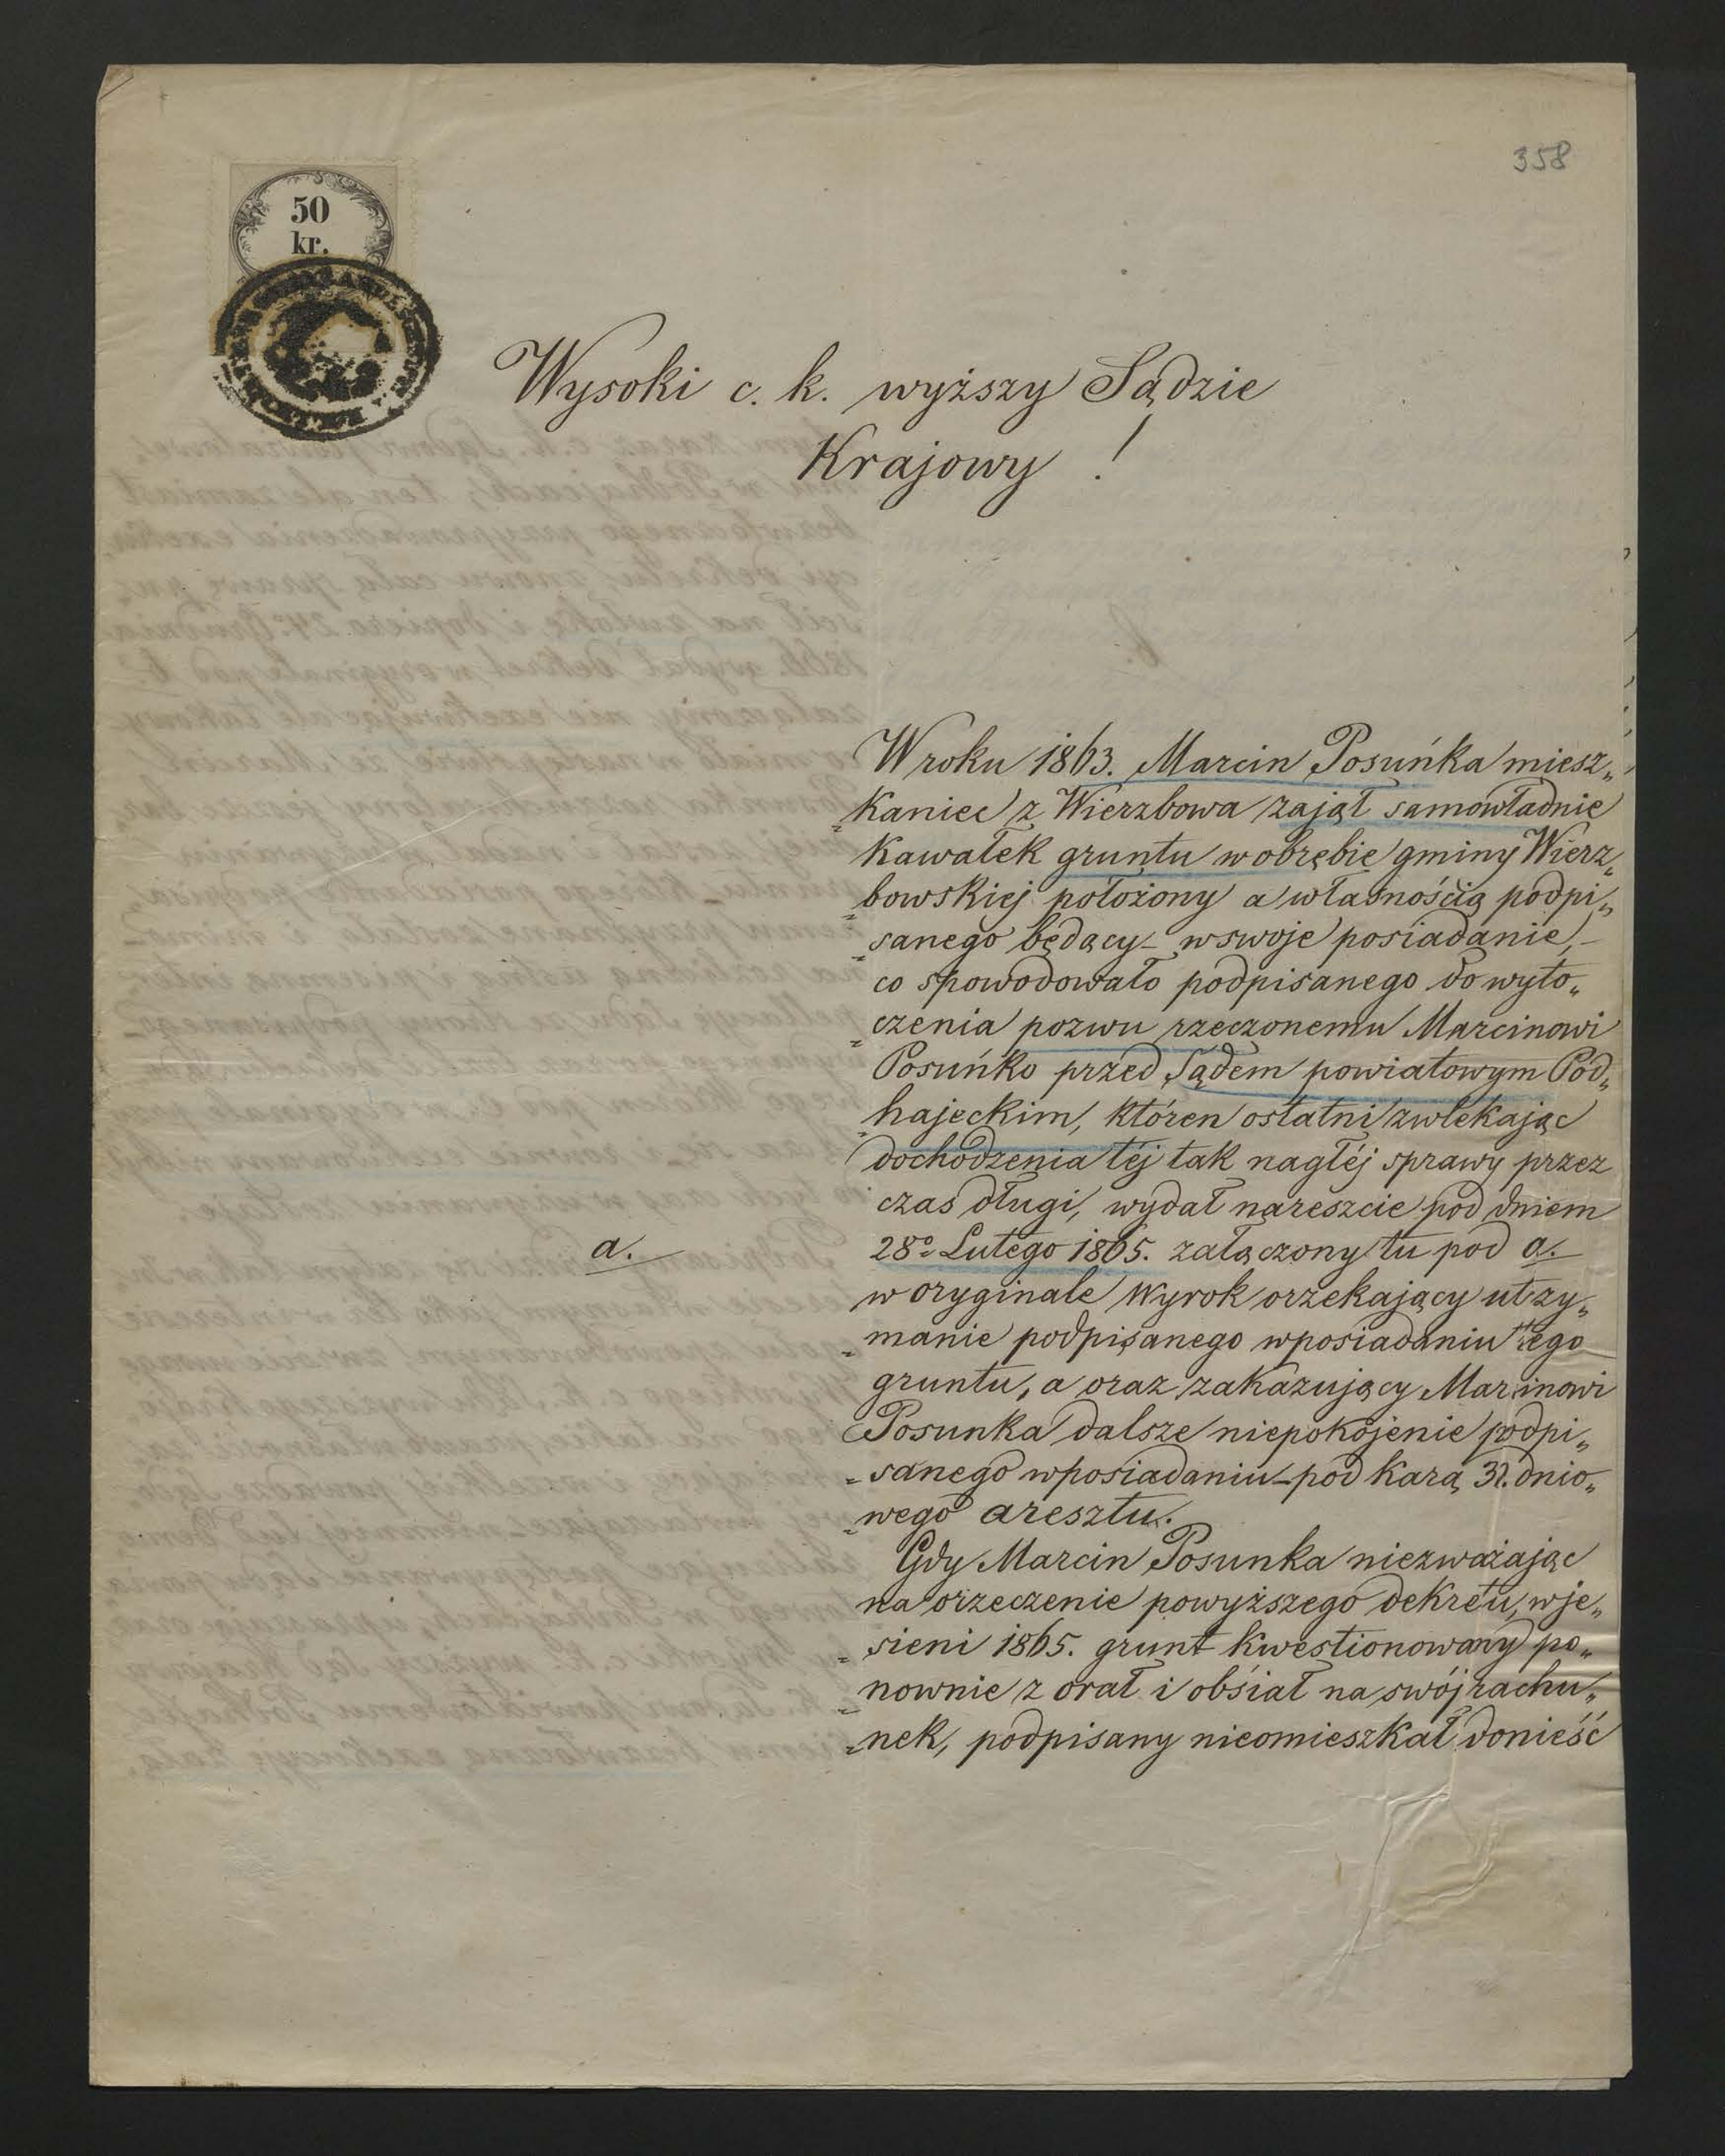 358
50
kr.
Wysoki c. k. wyższy Sądzie
Krajowy !
W roku 1863. Marcin Posuńka miesz„
„kaniec z Wierzbowa zajął samowładnie
kawałek gruntu w obrębie gminy Wierz„
„bowskiej położony a własnością podpi„
„sanego będący – w swoje posiadanie, –
co spowodowało podpisanego do wyto„
„czenia pozwu rzeczonemu Marcinowi
Posuńko przed Sądem powiatowym Pod„
„hajeckim, któren ostatni zwlekając
dochodzenia téj tak nagłéj sprawy przez
czas długi, wydał nareszcie pod dniem
a.
28o Lutego 1865. załączony tu pod a.
w oryginale Wyrok orzekający utrzy„
„manie podpisanego w posiadaniu tego
gruntu, a oraz zakazujący Marcinowi
Posunka dalsze niepokojenie podpi„
„sanego w posiadaniu – pod karą dnio„
„wego aresztu.
Gdy Marcin Posunka niezważając
na orzeczenie powyższego dekretu, w je„
„sieni 1865. grunt kwestionowany po„
„nownie z orał i obśiał na swój rachu„
„nek, podpisany nieomieszkał donieść